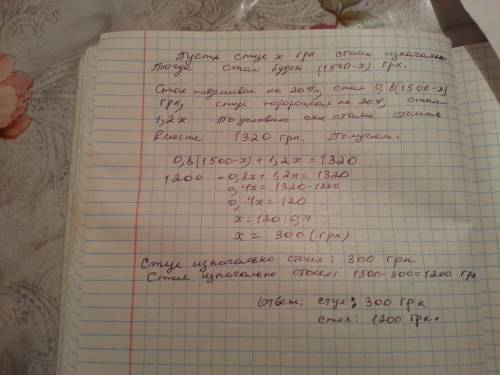 Пусть стул x грн стоил изначально
Тогда стол будет (1500-x) грн.
Стол подешевел на 20%, стал 0,8(1500-x)
грн, стул подорожал на 20%, стал
1,2x. По условию они стали стоить
вместе 1320 грн. Получаем:
0,8(1500-x)+1,2x=1320
1200 -0,8x+1,2x=1320
0,4x=1320-1200
0,4x=120
x=120:0,4
x= 300(грн)
Стул изначально стоил: 300 грн
Стол изначально стоил: 1500-300=1200 грн
Ответ: стул: 300 грн
стол: 1200 грн.